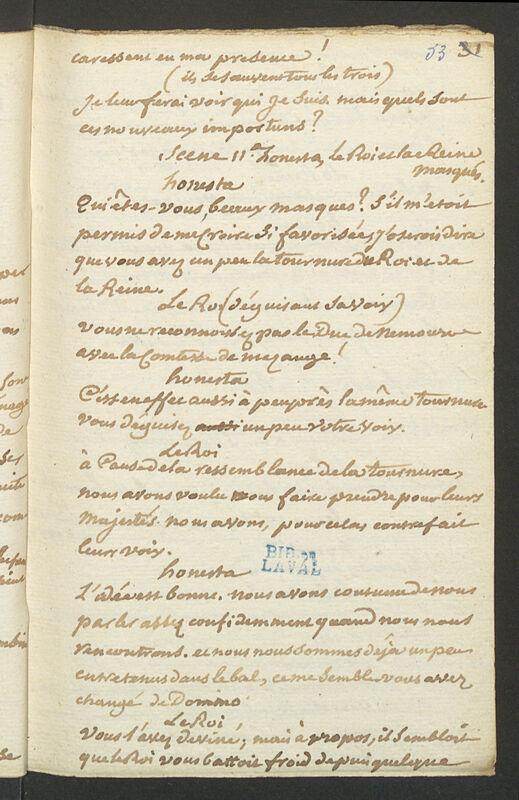 caressent en ma presence!
53 31
(ils se sauvent tous les trois)
Je leur ferai voir qui Je suis. mais quels sont
ces nouveaux importuns?
Scene 11e. honesta, le Roi et la Reine
masqués.
honesta
Qui êtes-vous, beaux masques? S'il m'etoit
permis de me Croire Si favorisée, J'oserois dire
que vous avez un peu la tournure du Roi et de
la Reine.
Le Roi (déguisant Sa voix)
vous ne reconnoissez pas le Duc de Nemours
avec la Comtesse de mezange!
honesta
C'est en effet aussi à peu près la même tournure
vous déguisez aussi un peu votre voix.
Le Roi
à Cause de la ressemblance de la tournure,
nous avons voulu nous faire prendre pour leurs
Majestés. nous avons, pour celas contrefait
leurs voix.
BIB.
LAVAL
honesta
L'idée est bonne. nous avons coutume de nous
parler assez confidemment quand nous nous
rencontrons. et nous nous sommes déjà un peu
entretenus dans le bal, ce me semble. vous avez
changé de Domino.
Le Roi
vous l'avez deviné; mais à propos, il sembloit
que le Roi vous battoit froid depuis quelque